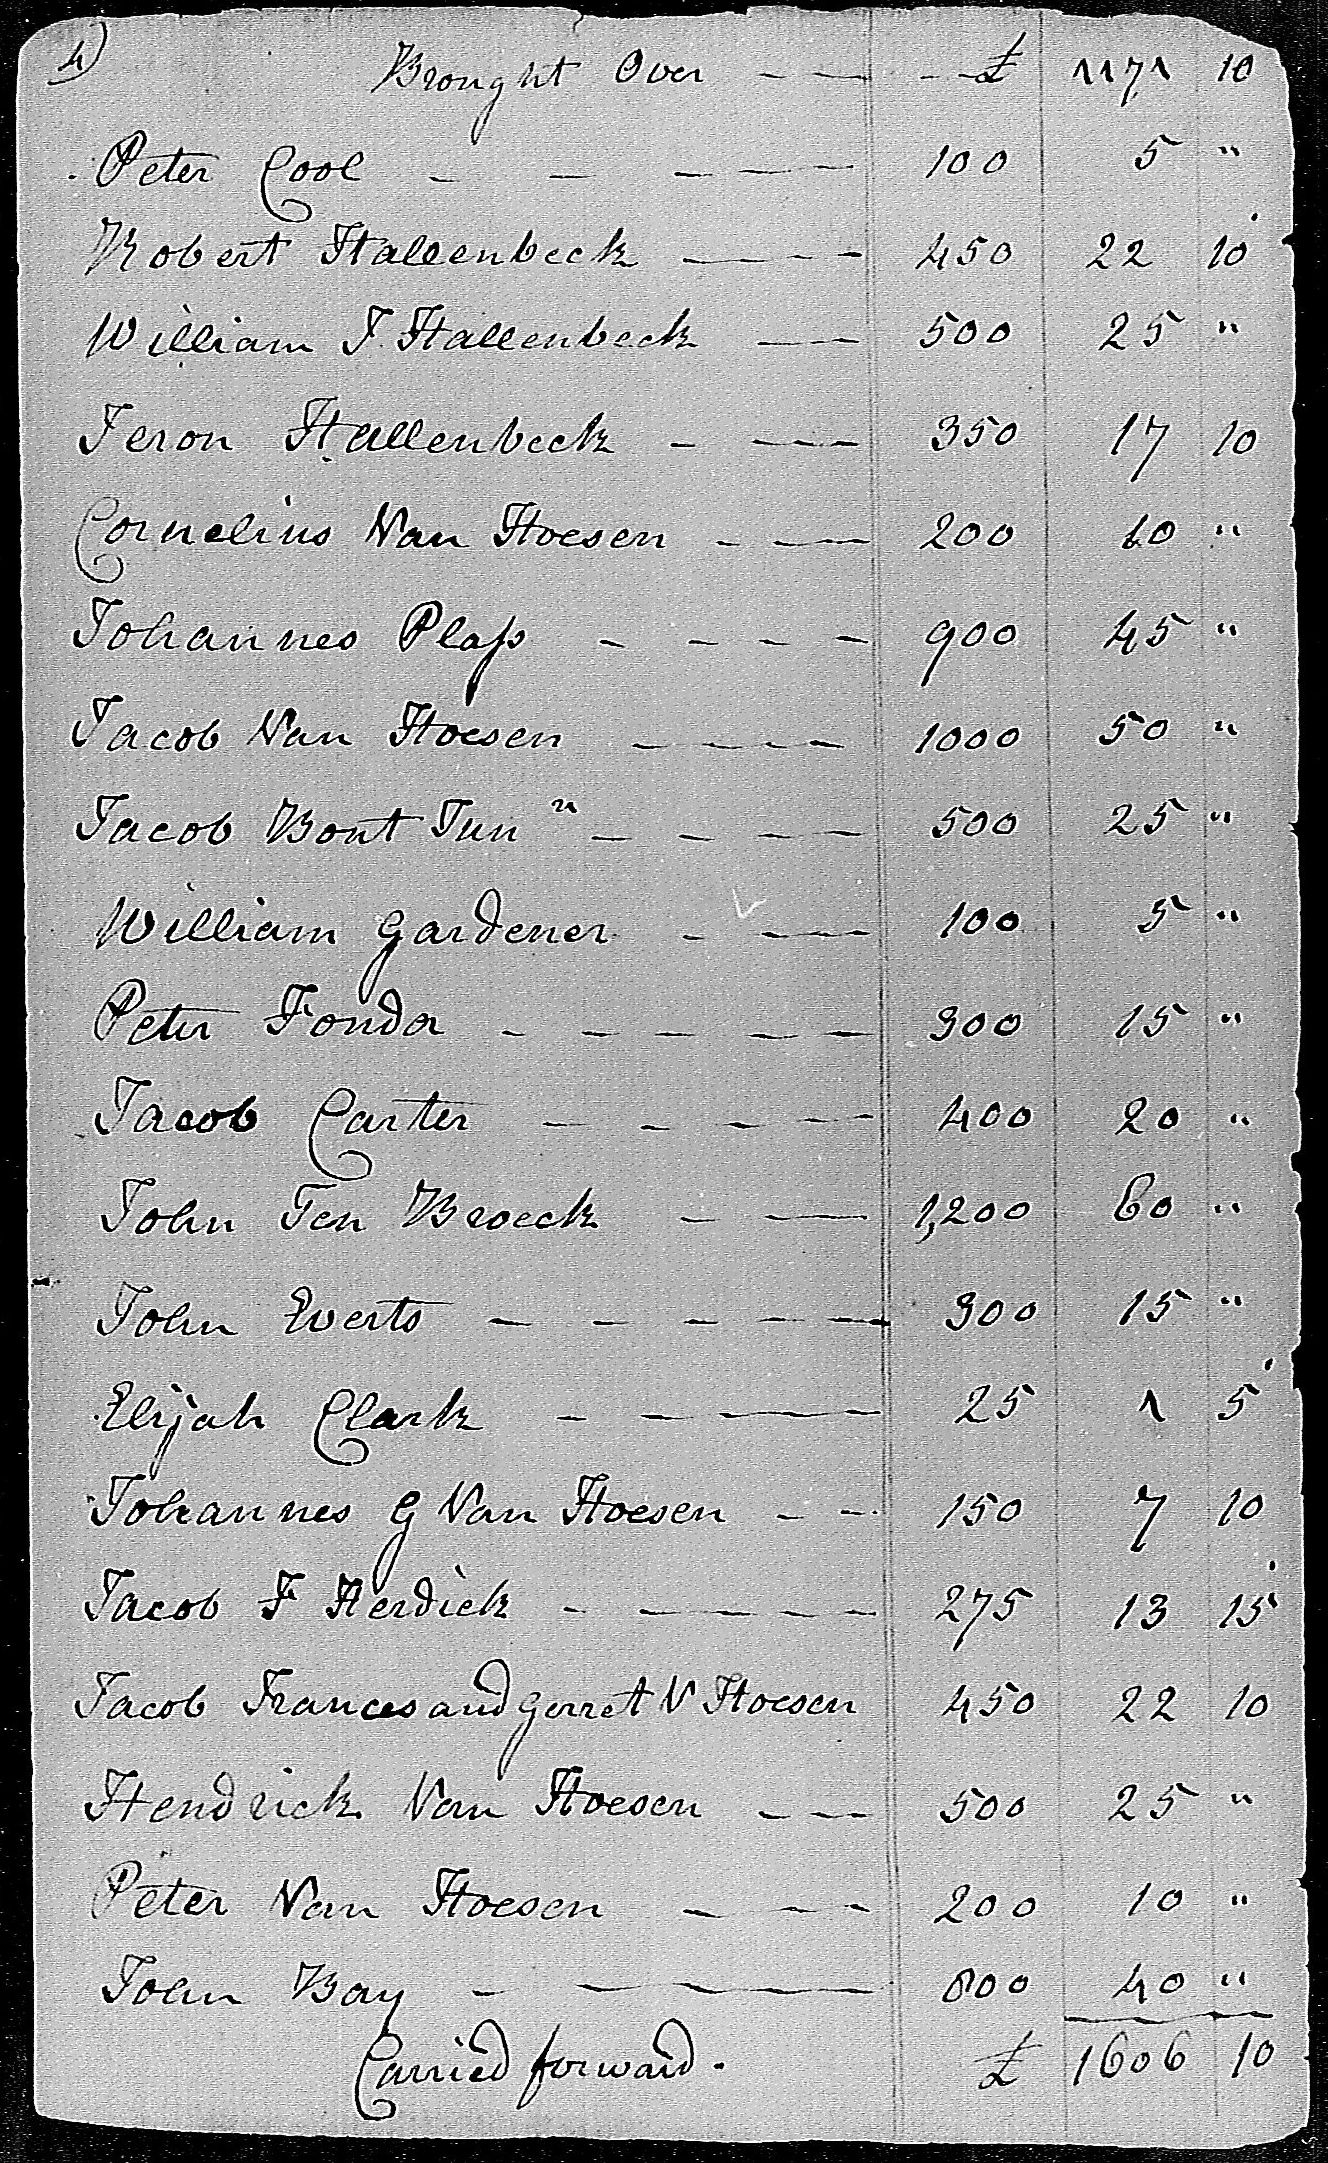 4)
Brought Over — — — £ 1171 10
Peter Cool — — — — — 100 5 "
Robert Hallenbeck — — — — 450 22 10
William J. Hallenbeck — — 500 25 "
Jeron Hallenbeck — — — — 350 17 10
Cornelius Van Hoesen — — — 200 10 "
Johannes Plaſs — — — — 900 45 "
Jacob Van Hoesen — — — — 1000 50 "
Jacob Bont Junr — — — — 500 25 "
William Gardener — — — 100 5 "
Peter Fonda — — — — — 300 15 "
Jacob Carter — — — — — 400 20 "
John Ten Broeck — — — 1,200 60 "
John Everts — — — — — 300 15 "
Elijah Clark — — — — — 25 1 5
Johannes G Van Hoesen — — 150 7 10
Jacob F Herdick — — — — — 275 13 15
Jacob Frances and Gerret V Hoesen 450 22 10
Hendrick Van Hoesen — — — 500 25 "
Peter Van Hoesen — — — 200 10 "
John Bay — — — — 800 40 "
Carried forward. £ 1606 10